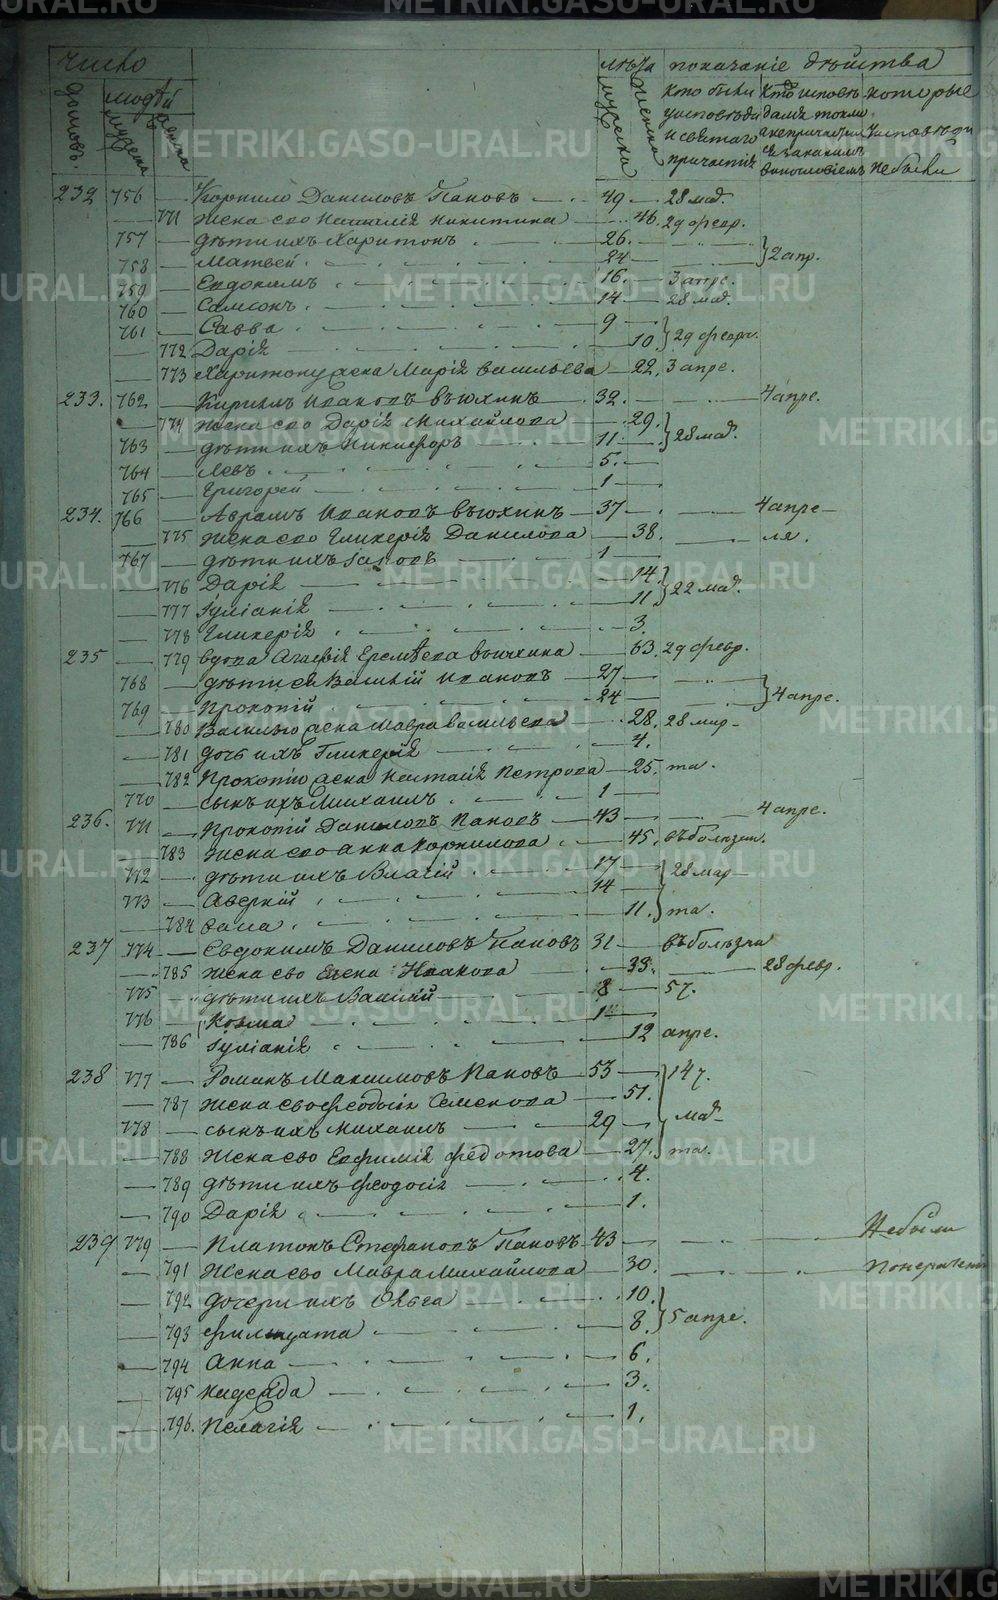 число лѣта показаніе дѣйства
домовъ. людѣй мужеска женска мужеска женска кто были у исповѣди и святаго причастія Кто исповѣдался токмо а не причастился и за какимъ винословіемъ которые исповѣди не были
232 756 — Корнило Даниловъ Пановъ — 49 — 28 мар.
— 771 жена его Наталія Никитина — 46. 29 февр.
757 — дѣти ихъ Харитонъ — 26.
758 — Матвей — 24 — } 2 апр.
759 — Евдокимъ — 16. — 3 апре.
760 — Самсонъ — 14 — 28 мар.
761 — Савва — 9 —
— 772 Дарія — 10. } 29 февр.
— 773 Харитону жена Марія Васильева — 22. 3 апре.
233. 762 — Кирилъ Ивановъ Вьюхинъ — 32. — 4 апре.
— 774 жена его Дарія Михайлова — 29.
763 — дѣти ихъ Никифоръ — 11 — } 28 мар.
764 — Левъ — 5. —
765 — Григорей — 1 —
234. 766 — Аврамъ Ивановъ Вьюхинъ — 37 — 4 апре-
— 775 жена его Гликерія Данилова — 38. — ля.
767 — дѣти ихъ Іаковъ — 1 —
— 776 Дарія — 14.
— 777 Іуліанія — 11 } 22 мар.
— 778 Гликерія — 3.
235 — 779 вдова Агафія Еремѣева Вьюхина — 63. 29 февр.
768 — дѣти ея Василій Ивановъ — 27 —
769 — Прокопій — 24 — } 4 апре.
— 780 Василью жена Мавра Васильева — 28. 28 мар-
— 781 дочь ихъ Гликерія — 4.
— 782 Прокопію жена Настасія Петрова — 25. та.
770 — сынъ ихъ Михаилъ — 1 —
236. 771 — Прокопій Даниловъ Пановъ — 43 — 4 апре.
— 783 жена его Анна Корнилова — 45. въ болѣзни.
772 — дѣти ихъ Власій — 17 — } 28 мар-
773 — Аверкій — 14 —
— 784 — 11. } та.
237 774 — Евдокимъ Даниловъ Пановъ 31 — въ болѣзни
— 785 жена его Елена Исакова — 33. — 28 февр.
775 — дѣти ихъ Василій — 8 — 5 ч.
776 — Козма — 1 —
— 786 Іуліанія — 12 апре.
238 777 — Романъ Максимовъ Пановъ — 53 — } 14 ч.
— 787 жена его Феодосія Семенова — 51.
778 — сынъ ихъ Михаилъ — 29 — мар-
— 788 жена его Евфимія Федотова — 27. } та.
— 789 дѣти ихъ Феодосія — 4.
— 790 Дарія — 1.
239 779 — Платонъ Стефановъ Пановъ 43 — Небыли
— 791 жена его Мавра Михайлова — 30. —
— 792 дочери ихъ Ольга — 10.
— 793 Филицата — 8. } 5 апре.
— 794 Анна — 6.
— 795 Надежда — 3.
— 796. Пелагія — 1.
METRIKI.GASO-URAL.RU